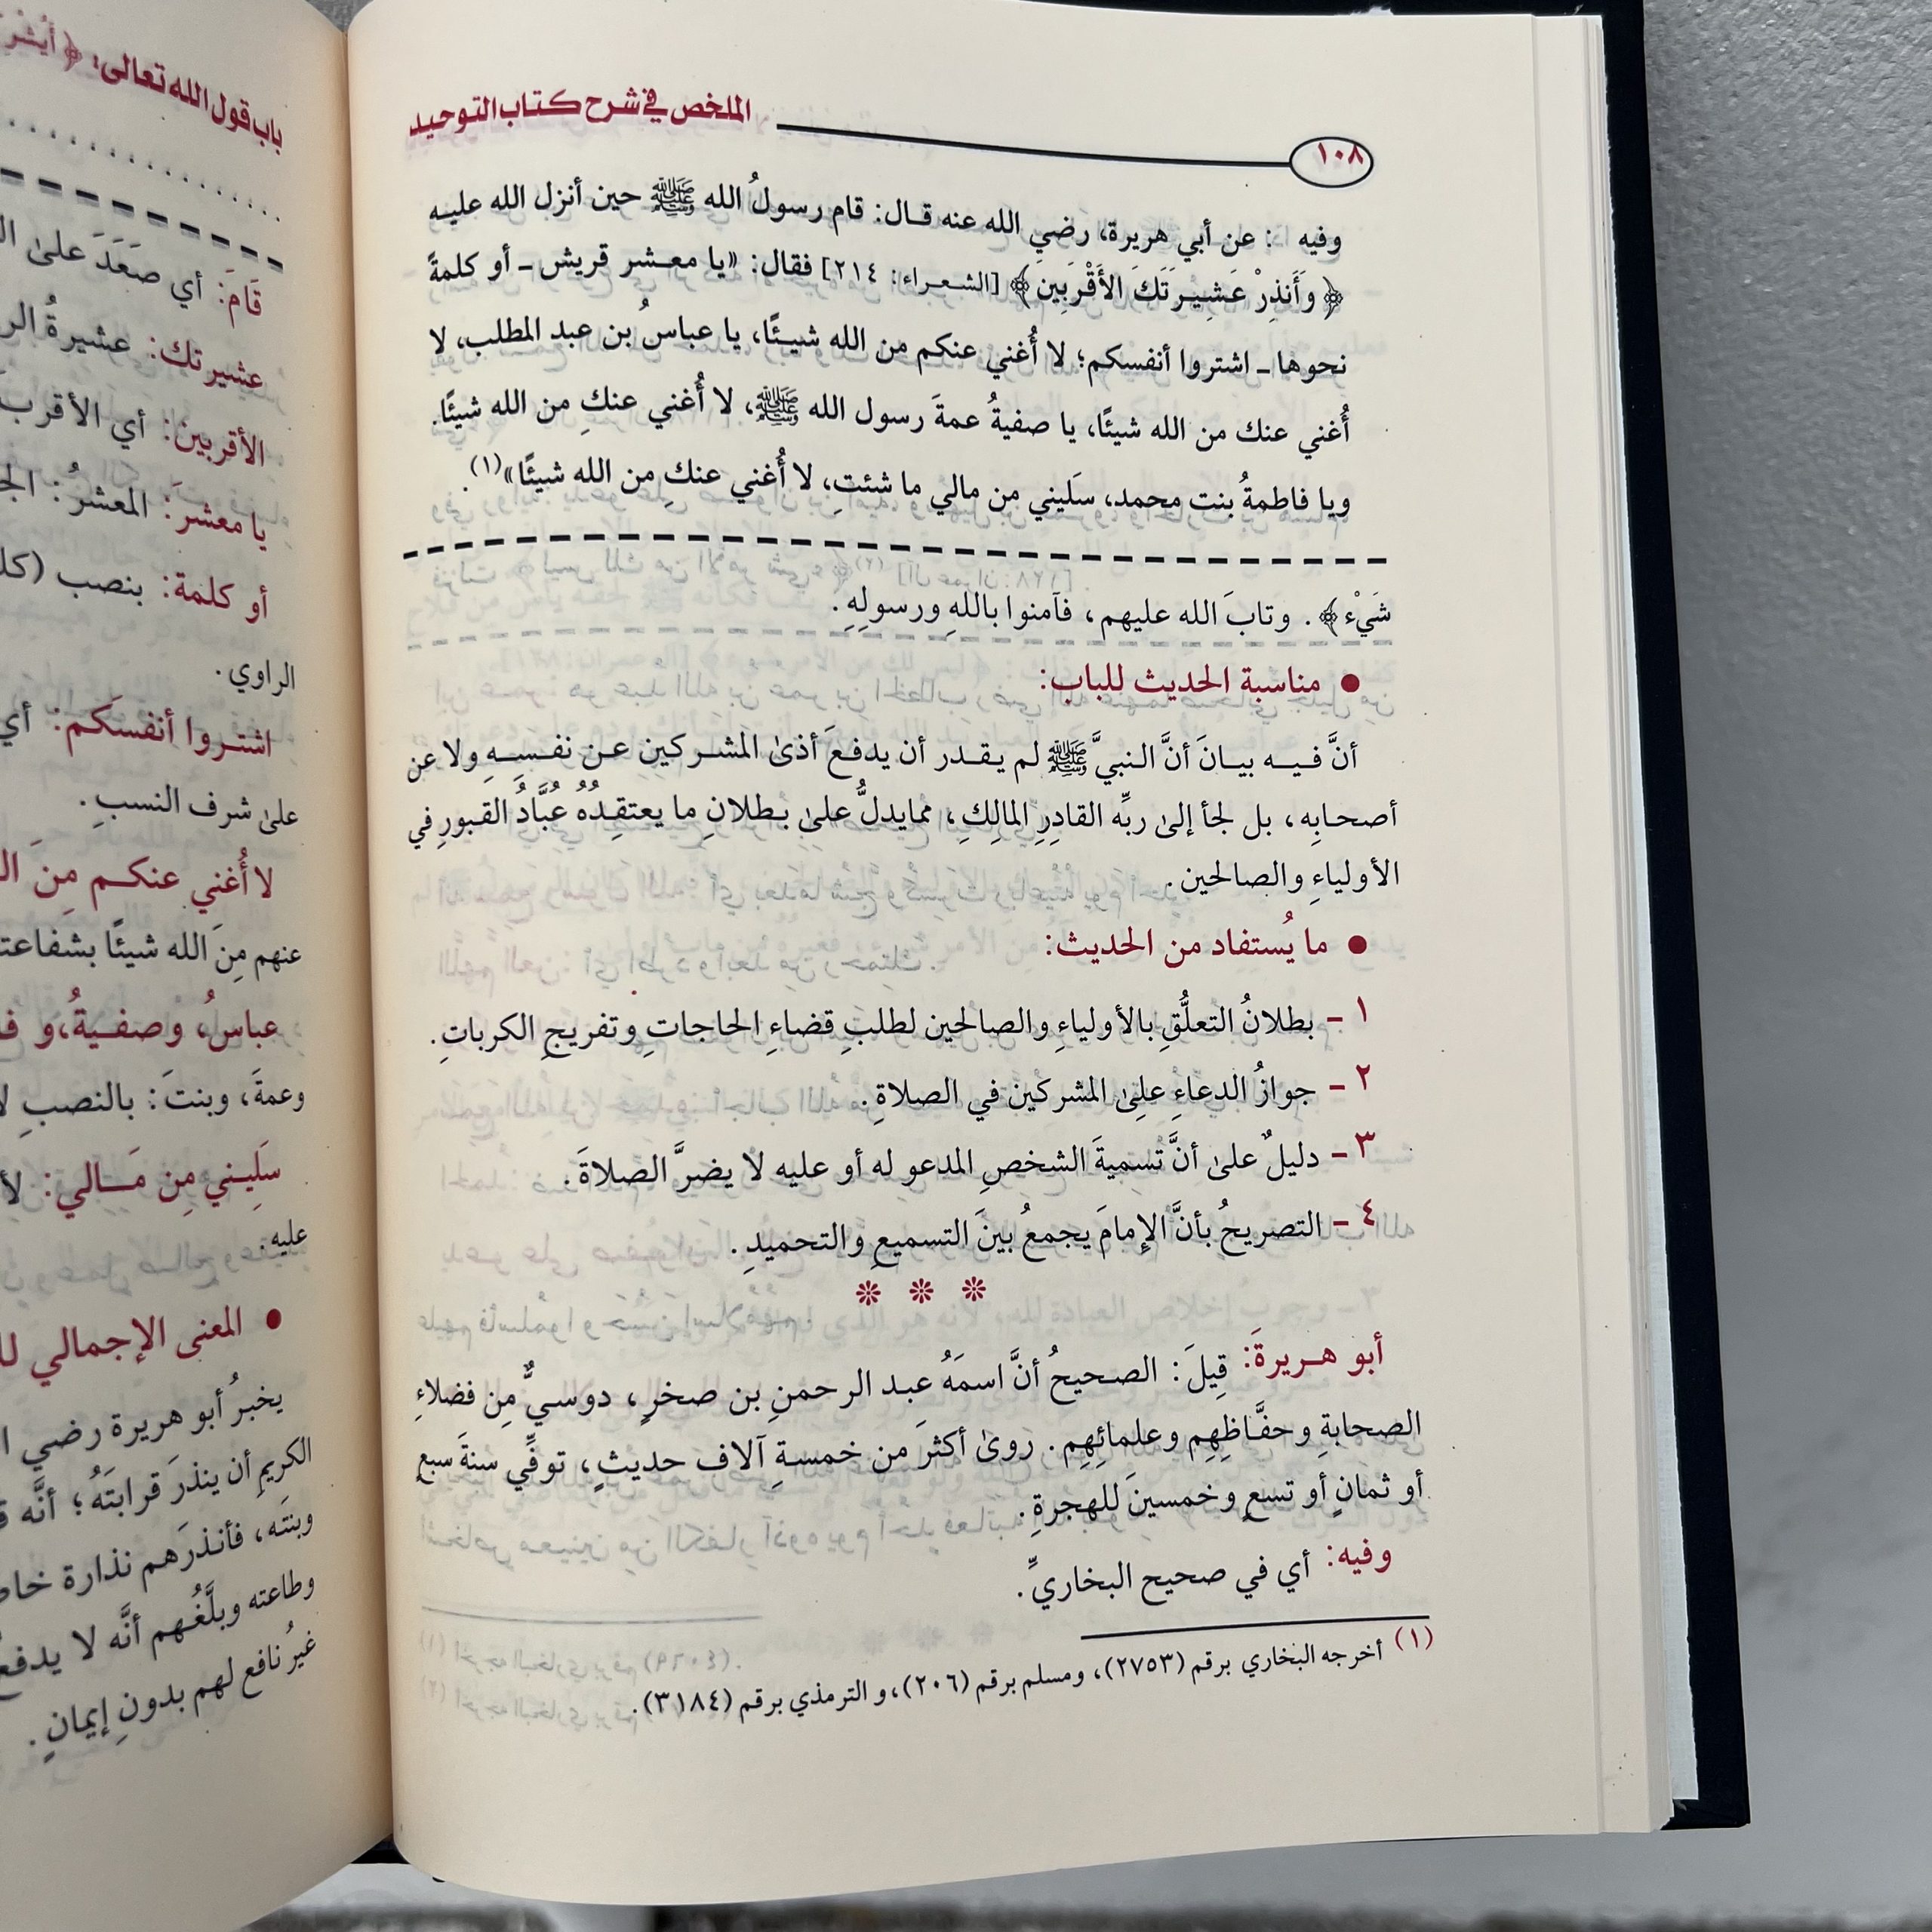 الملخص في شرح كتاب التوحيد
١٠٨
وفيه : عن أبي هريرة، رضي الله عنه قال: قام رسولُ الله ﷺ حين أنزل الله عليه
﴿وَأَنذِرْ عَشِيرَتَكَ الأَقْرَبِينَ﴾ [الشعراء: ٢١٤] فقال: «يا معشر قريش ـ أو كلمةً
نحوها ـ اشتروا أنفسكم؛ لا أُغني عنكم من الله شيئًا، يا عباسُ بن عبد المطلب، لا
أُغني عنك من الله شيئًا، يا صفيةُ عمةَ رسول الله ﷺ، لا أُغني عنكِ من الله شيئًا.
ويا فاطمةُ بنت محمد، سَليني من مالي ما شئتِ، لا أُغني عنكِ من الله شيئًا»(١).
شَيْء﴾. وتابَ الله عليهم، فآمنوا باللهِ ورسولِهِ.
● مناسبة الحديث للباب:
أنَّ فيه بيانَ أنَّ النبيَّ ﷺ لم يقدر أن يدفعَ أذىٰ المشركين عن نفسهِ ولا عن
أصحابِه، بل لجأ إلىٰ ربِّه القادِرِ المالِكِ، ممايدلُّ علىٰ بطلانِ ما يعتقِدُهُ عُبَّادُ القبورِ في
الأولياءِ والصالحين.
● ما يُستفاد من الحديث:
١ - بطلانُ التعلُّقِ بالأولياءِ والصالحين لطلبِ قضاءِ الحاجاتِ وتفريجِ الكرباتِ.
٢ - جوازُ الدعاءِ علىٰ المشركين في الصلاةِ.
٣ - دليلٌ علىٰ أنَّ تسميةَ الشخصِ المدعو له أو عليه لا يضرَّ الصلاةَ.
٤ - التصريحُ بأنَّ الإمامَ يجمعُ بينَ التسميعِ والتحميدِ.
أبو هريرةَ: قِيلَ: الصحيحُ أنَّ اسمَهُ عبد الرحمنِ بن صخرٍ، دوسيٌّ مِن فضلاءِ
الصحابةِ وحفَّاظِهِم وعلمائِهِم. روىٰ أكثرَ من خمسةِ آلاف حديثٍ، توفِّي سنةَ سبعٍ
أو ثمانٍ أو تسعٍ وخمسينَ للهجرةِ.
وفيه: أي في صحيح البخاريِّ.
(١) أخرجه البخاري برقم (٢٧٥٣)، ومسلم برقم (٢٠٦)، و الترمذي برقم (٣١٨٤).
باب قول الله تعالى: ﴿
قَامَ: أي صَعَدَ علىٰ
عشيرتك: عشيرةُ
الأقربين: أي الأقرب
يا معشرَ: المعشرُ:
أو كلمة: بنصب
الراوي.
اشتروا أنفسكم: أي
علىٰ شرف النسبِ.
لا أُغني عنكم مِنَ
عنهم مِنَ الله شيئًا
عباسُ، وصفيةُ،و
وعمةَ، وبنتَ: بالنصبِ
سَلِيني مِن مَالي:
عليه.
● المعنى الإجمالي
يخبرُ أبو هريرة رضي
الكريم أن ينذرَ قرابتَهُ؛ أنَّه
وبنتَه، فأنذرَهم نذارة
وطاعته وبلَّغُهم أنَّه لا
غيرُ نافع لهم بدونِ إيمانٍ.